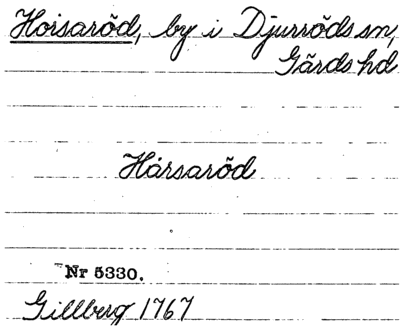 Hoisaröd, by i Djurröds sn,
Gärds hd
Hårsaröd
Nr 5330.
Gillberg 1767